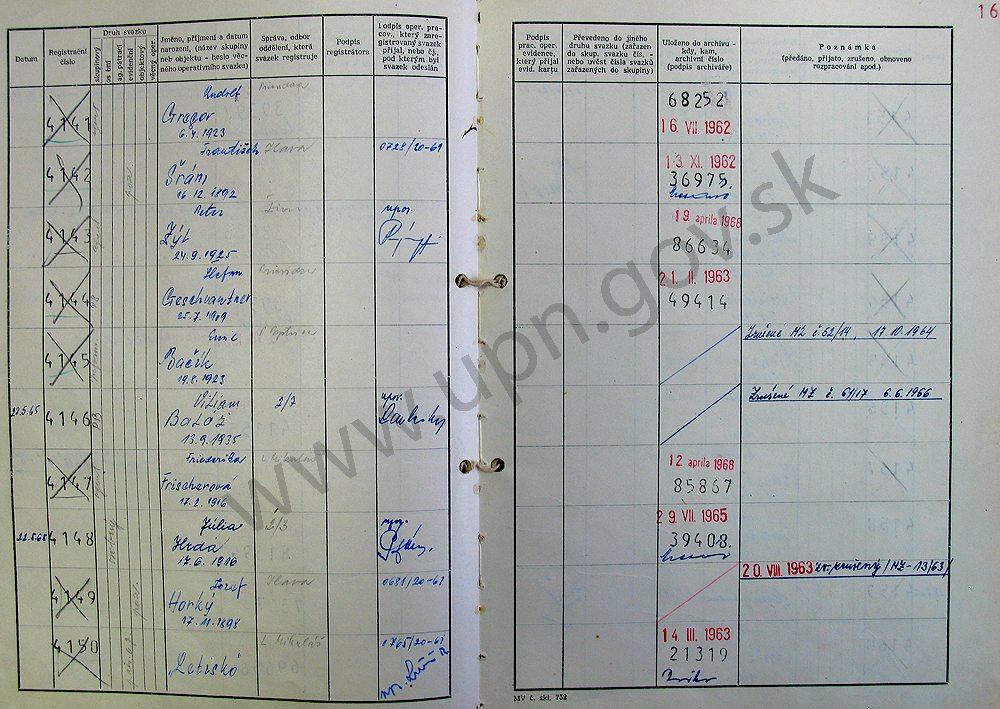 16
Datum
Registrační číslo
Druh svazku
skupinový
osobní
ag. pátrací
evidenční
objektový
věcný oper.
Jméno, příjmení a datum narození, (název skupiny neb objektu - heslo věcného operativního svazku)
Správa, odbor oddělení, která svazek registruje
Podpis registrátora
Podpis oper. pracov., který zaregistrovaný svazek přijal, nebo čj. pod kterým byl svazek odeslán
Podpis prac. oper. evidence, který přijal evid. kartu
Převedeno do jiného druhu svazku (zařazen do skup. svazku čís. - nebo uvést čísla svazků zařazených do skupiny)
Uloženo do archivu - kdy, kam, archivní číslo (podpis archiváře)
Poznámka
(předáno, přijato, zrušeno, obnoveno rozpracování apod.)
4141
Rudolf
Gregor
6.4.1923
68252
16. VII. 1962
4142
František Ilava
Šrám
16.12.1892
0728/20-61
13. XI. 1962
36975
4143
Peter
Zýt
24.9.1925
npor.
19. apríla 1968
86634
4144
Štefan
Geschvantner
25.7.1909
21. II. 1963
49414
4145
Emil
Bačík
19.8.1923
Zrušené MZ č. 52/14, 17.10.1964
22.5.65
4146
Viliam
Baláž
13.9.1935
2/7
npor.
Zrušené MZ č. 61/17 6.6.1966
4147
Friederika
Frischerová
17.2.1916
L. Mikuláš
12. apríla 1968
85867
22.5.65
4148
Júlia
Hrdá
17.6.1916
2/3
npor.
29. VII. 1965
39408.
4149
Jozef
Horký
17.11.1898
Ilava
0681/20-61
20. VIII. 1963 zv. zrušený /MZ-13/63/
4150
Letisko
L. Mikuláš
0765/20-61
14. III. 1963
21319
MV č. skl. 732
www.upn.gov.sk